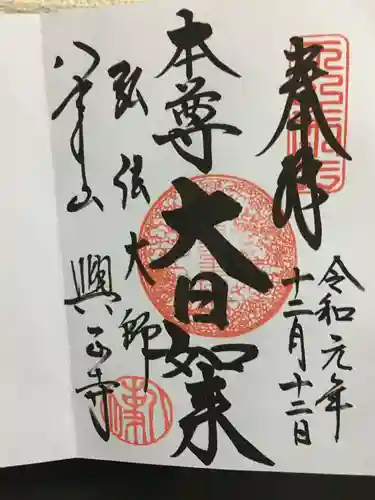 奉拝
令和元年
十二月十二日
本尊
大日如来
弘法大師
八事山
興正寺